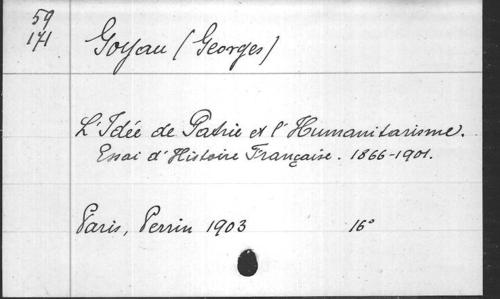 59
171
Goyau (Georges)
L'Idée de Patrie et l'Humanitarisme.
Essai d'Histoire Française. 1866-1901.
Paris, Perrin 1903 16°